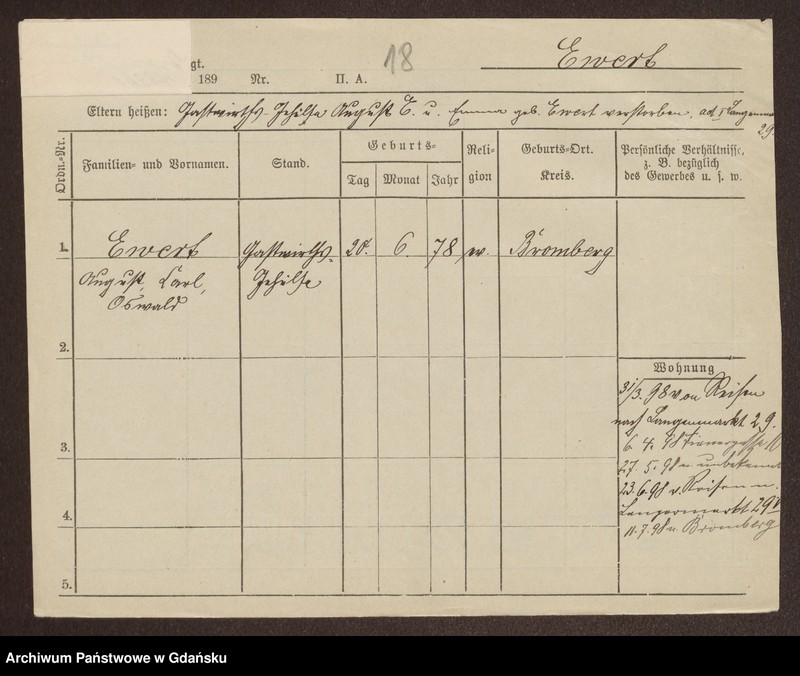 18
Ewert
gt.
189 Nr. II. A.
Eltern heißen: Gastwirths-Gehilfe August E. u. Emma geb. Ewert verstorben,
29.
Ordn.-Nr.
Familien- und Vornamen.
Stand.
Geburts-
Tag Monat Jahr
Reli-
gion
Geburts-Ort.
Kreis.
Persönliche Verhältnisse,
z. B. bezüglich
des Gewerbes u. s. w.
1. Ewert Gastwirths- 20. 6. 78 ev. Bromberg
August, Carl, Gehilfe
Oswald
2.
Wohnung
31/3. 98 von Reisen
nach Langenmarkt 29.
6. 4. 98
3.
27. 5. 98 n. unbekannt
23. 6. 98 v. Reisen n.
Langenmarkt 29
4.
11. 7. 98 n. Bromberg
5.
Archiwum Państwowe w Gdańsku